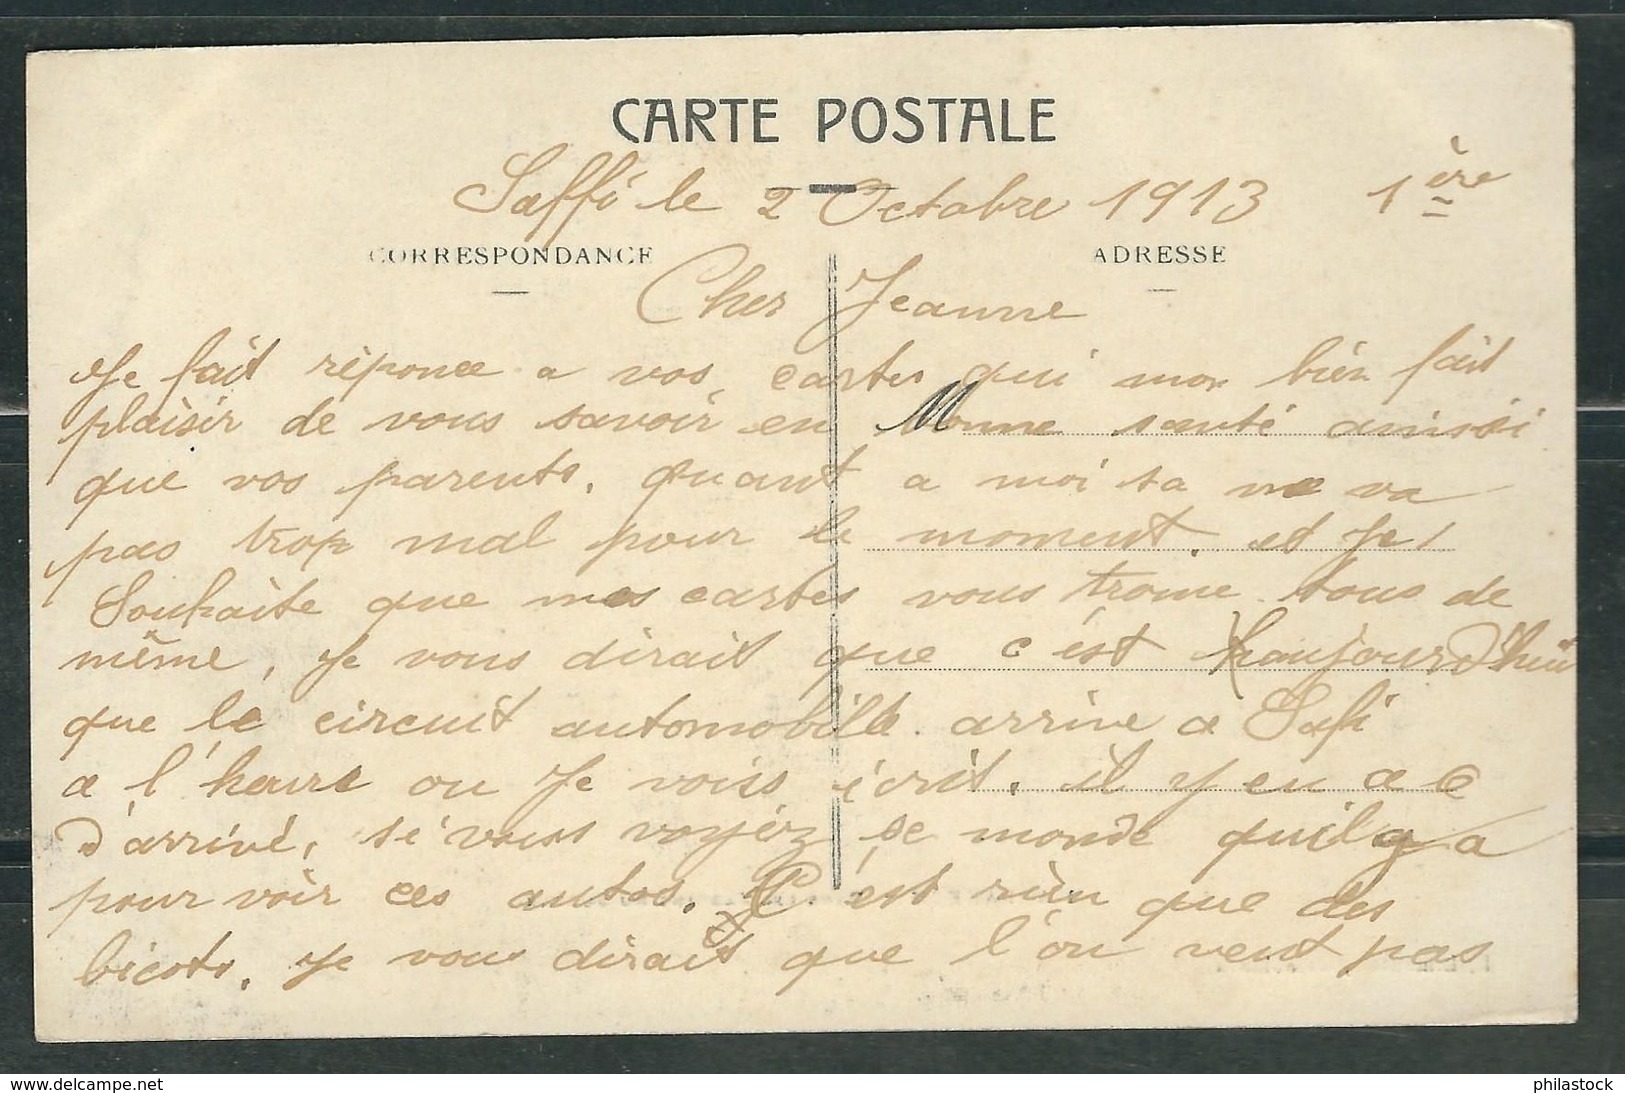 CARTE POSTALE
Saffi le 2 Octobre 1913 1ère
CORRESPONDANCE ADRESSE
Cher Jeanne
Je fait réponce a vos cartes qui mon bien fait
plaisir de vous savoir en bonne santé ainssi
que vos parents. quant a moi sa ne va
pas trop mal pour le moment. et Je
Souhaite que mes cartes vous trouve tous de
même, Je vous dirait que c'est haujourd'hui
que le circuit automobille arrive a Safi
a l'heure ou Je vous écrit. il y en a
d'arrivé, si vous voyéz se monde quil y a
pour voir ces autos. C'est rien que des
bicots. Je vous dirait que l'on veut pas
philastock